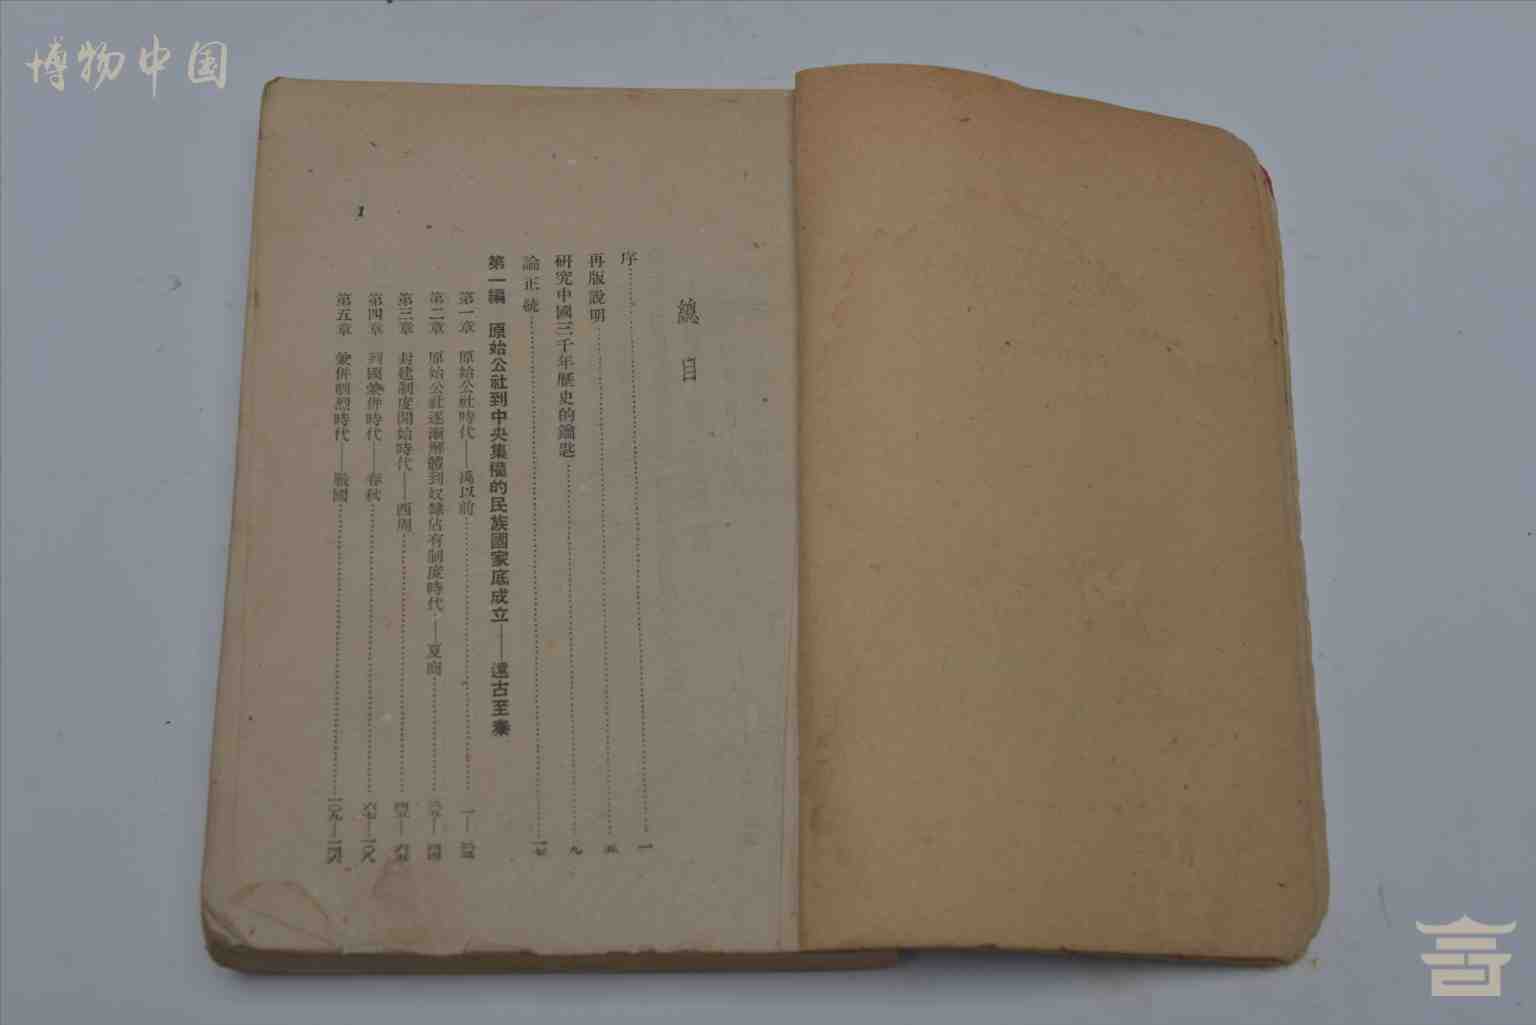 博物中国
總目
序⋯⋯一
再版說明⋯⋯五
研究中國三千年歷史的鑰匙⋯⋯九
論正統⋯⋯一七
第一編 原始公社到中央集權的民族國家底成立——遠古至秦
第一章 原始公社時代——禹以前⋯⋯
第二章 原始公社逐漸解體到奴隸佔有制度時代——夏商⋯⋯
第三章 封建制度開始時代——西周⋯⋯
第四章 列國兼併時代——春秋⋯⋯六七—一〇八
第五章 兼併劇烈時代——戰國⋯⋯一〇九—
1